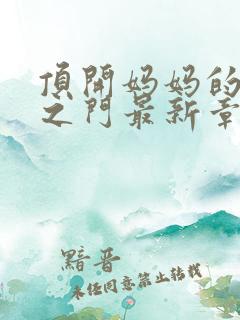 頂開妈妈的
之门最新章
黯晋
未经同意禁止转载